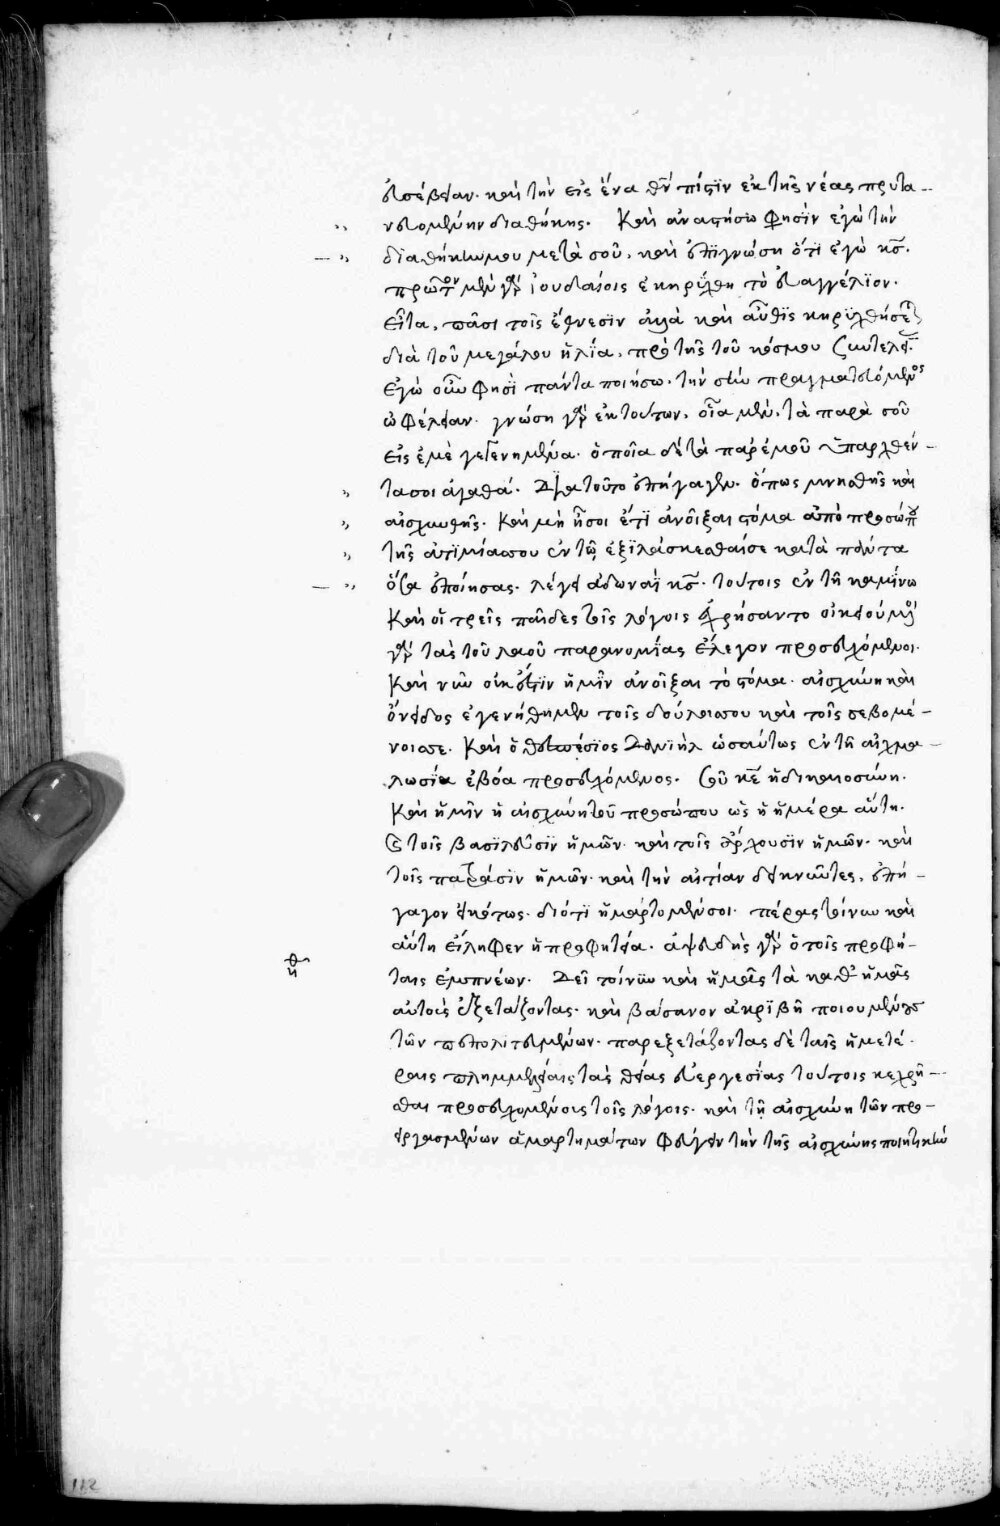 εὐσέβειαν. καὶ τὴν εἰς ἕνα θν̅ πίστϊν ἐκ τῆς νέας πρυτα-
νευομένην διαθήκης. Καὶ ἀναστήσω φησὶν ἐγὼ τὴν
διαθήκην μου μετὰ σοῦ, καὶ ἐπϊγνώση ὅτϊ ἐγὼ κς̅.
πρῶτον μὲν γὰρ ἰουδαίοις ἐκηρύχθη τὸ εὐαγγέλϊον.
εἶτα, πᾶσι τοῖς ἔθνεσϊν ἀλλὰ καὶ αὖθϊς κηρϋχθήσεται
διὰ τοῦ μεγάλου ἠλία, πρὸ τῆς τοῦ κόσμου συντελείας.
ἐγὼ οὖν φησὶ πάντα ποιήσω, τὴν σὴν πραγματευόμενος
ὠφέλειαν. γνώση γὰρ ἐκ τούτων, οἷα μὲν, τὰ παρὰ σοῦ
εἰς ἐμὲ γεγενημένα. ὁποῖα δὲ τὰ παρ' ἐμοῦ ὑπαρχθέν-
τα σοι ἀγαθά. Δϊατοῦτο ἐπήγαγεν. ὅπως μνησθῆς καὶ
αἰσχυνθῆς. Καὶ μὴ ἦ σοι ἔτϊ ἀνοῖξαι στόμα ἀπὸ προσώπου
τῆς ἀτϊμίας σου ἐν τῶ ἐξϊλάσκεσθαί σε κατὰ πάντα
ὅσα ἐποίησας. λέγει ἀδωναῒ κς̅. τούτοις ἐν τῆ καμίνω
Καὶ οἱ τρεῖς παῖδες τοῖς λόγοις ἐχρήσαντο οἰκειούμενοι
γὰρ τὰς τοῦ λαοῦ παρανομίας ἔλεγον προσευχόμενοι.
Καὶ νῦν οὐκ ἔστϊν ἡμῖν ἀνοῖξαι τὸ στόμα. αἰσχύνη καὶ
ὄνειδος ἐγενήθημεν τοῖς δούλοις σου καὶ τοῖς σεβομέ-
νοις σε. Καὶ ὁ θεσπέσϊος Δανϊὴλ ὡσαύτως ἐν τῆ αἰχμα-
λωσία ἐβόα προσευχόμενος. Σοῦ κε̅ ἡ δικαιοσύνη.
Καὶ ἡμῖν ἡ αἰσχύνη τοῦ προσώπου ὡς ἡ ἡμέρα αὕτη.
Καὶ τοῖς βασϊλεῦσϊν ἡμῶν. καὶ τοῖς ἄρχουσϊν ἡμῶν. καὶ
τοῖς πατράσϊν ἡμῶν. καὶ τὴν αἰτίαν δεικνῦντες, ἐπή-
γαγον εἰκότως. διότϊ ἡμάρτομέν σοι. πέρας τοίνυν καὶ
αὕτη εἴληφεν ἡ προφητεία. ἀψευδὴς γὰρ ὁ τοῖς προφή-
ταις ἐμπνέων. Δεῖ τοίνυν καὶ ἡμᾶς τὰ καθ' ἡμᾶς
αὐτοὺς ἐξετάζοντας. καὶ βάσανον ἀκρϊβῆ ποιουμένους
τῶν πεπολιτευμένων. παρεξετάζοντας δὲ ταῖς ἡμετέ-
ραις πλημμελείαις τὰς θείας εὐεργεσίας τούτοις κεχρῆ-
σθαι προσευχομένους τοῖς λόγοις. καὶ τῆ αἰσχύνη τῶν προ-
ειργασμένων ἁμαρτημάτων φεύγειν τὴν τῆς αἰσχύνης ποιητικὴν